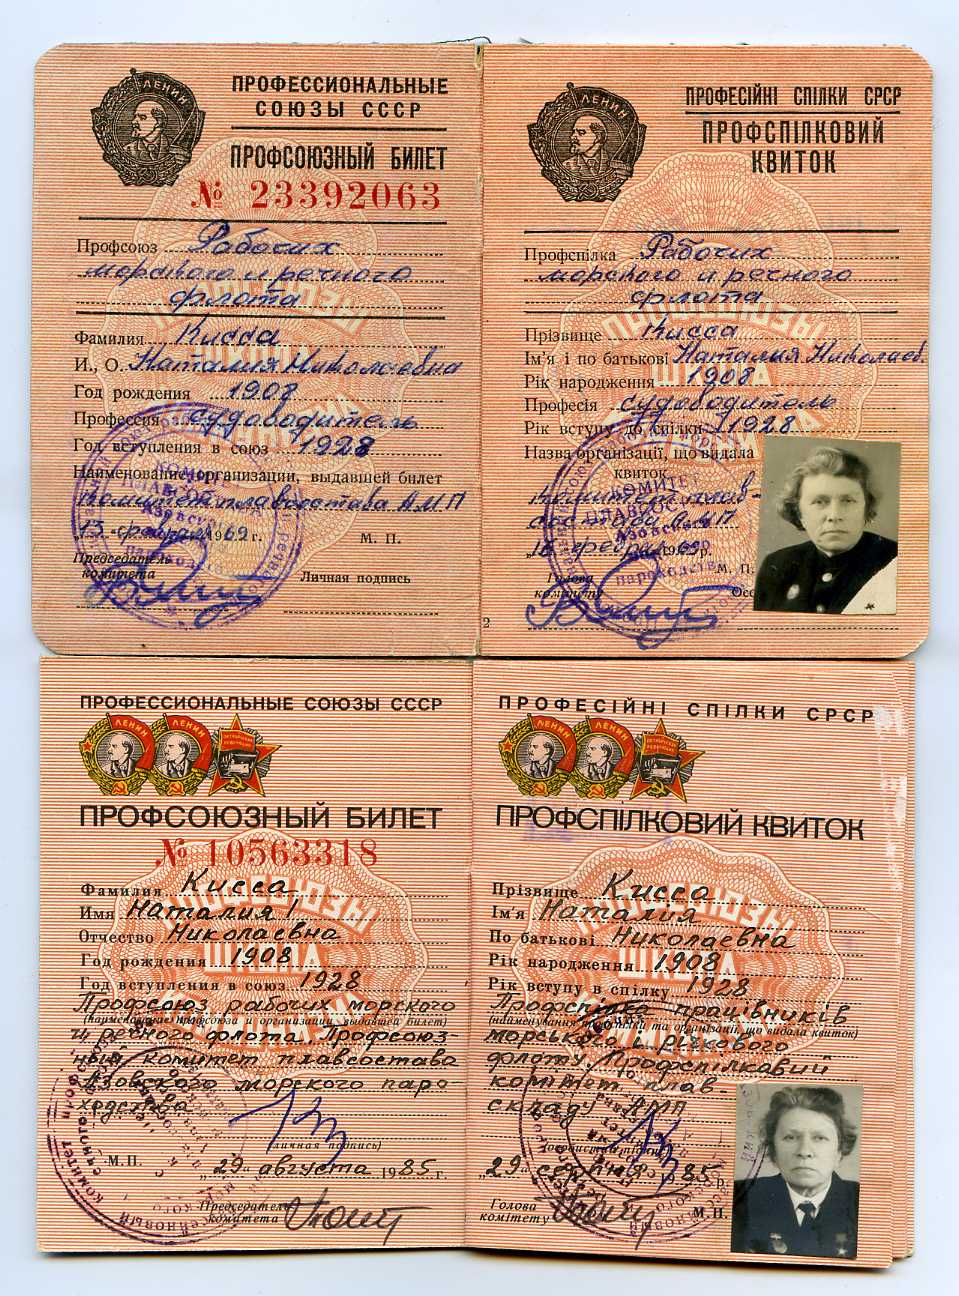 ПРОФЕССИОНАЛЬНЫЕ
СОЮЗЫ СССР
ПРОФСОЮЗНЫЙ БИЛЕТ
№ 23392063
Профсоюз Рабочих
морского и речного
флота
Фамилия Кисса
И., О. Наталия Николаевна
Год рождения 1908
Профессия судоводитель
Год вступления в союз 1928
Наименование организации, выдавшей билет
Комитет плавсостава АМП
„13“ февраля 1962 г. М. П.
Председатель
комитета
Личная подпись
ЛЕНИН
ПРОФЕСІЙНІ СПІЛКИ СРСР
ПРОФСПІЛКОВИЙ
КВИТОК
Профспілка Рабочих
морского и речного
флота
Прізвище Кисса
Ім'я і по батькові Наталия Николаев.
Рік народження 1908
Професія судоводитель
Рік вступу до спілки 1928
Назва організації, що видала
квиток
Комитет плав-
состава АМП
М. П.
Голова
комітету
2
ПРОФСОЮЗЫ
ШКОЛА
КОММУНИЗМА
ПРОФЕССИОНАЛЬНЫЕ СОЮЗЫ СССР
ЛЕНИН ЛЕНИН ОКТЯБРЬСКАЯ РЕВОЛЮЦИЯ
ПРОФСОЮЗНЫЙ БИЛЕТ
№ 10563318
Фамилия Кисса
Имя Наталия
Отчество Николаевна
Год рождения 1908
Год вступления в союз 1928
Профсоюз рабочих морского
(наименование профсоюза и организации, выдавшей билет)
и речного флота. Профсоюз-
ный комитет плавсостава
Азовского морского паро-
ходства
(личная подпись)
М. П. „29“ августа 1985 г.
Председатель
комитета
ПРОФЕСІЙНІ СПІЛКИ СРСР
ЛЕНИН ЛЕНИН ОКТЯБРЬСКАЯ РЕВОЛЮЦИЯ
ПРОФСПІЛКОВИЙ КВИТОК
Прізвище Кисса
Ім'я Наталия
По батькові Николаевна
Рік народження 1908
Рік вступу в спілку 1928
Профспілка працівників
(найменування профспілки та організації, що видала квиток)
морського і річкового
флоту. Профспілковий
комітет плав-
складу АМП
(особистий підпис)
„29“ 85 р.
Голова
комітету М. П.